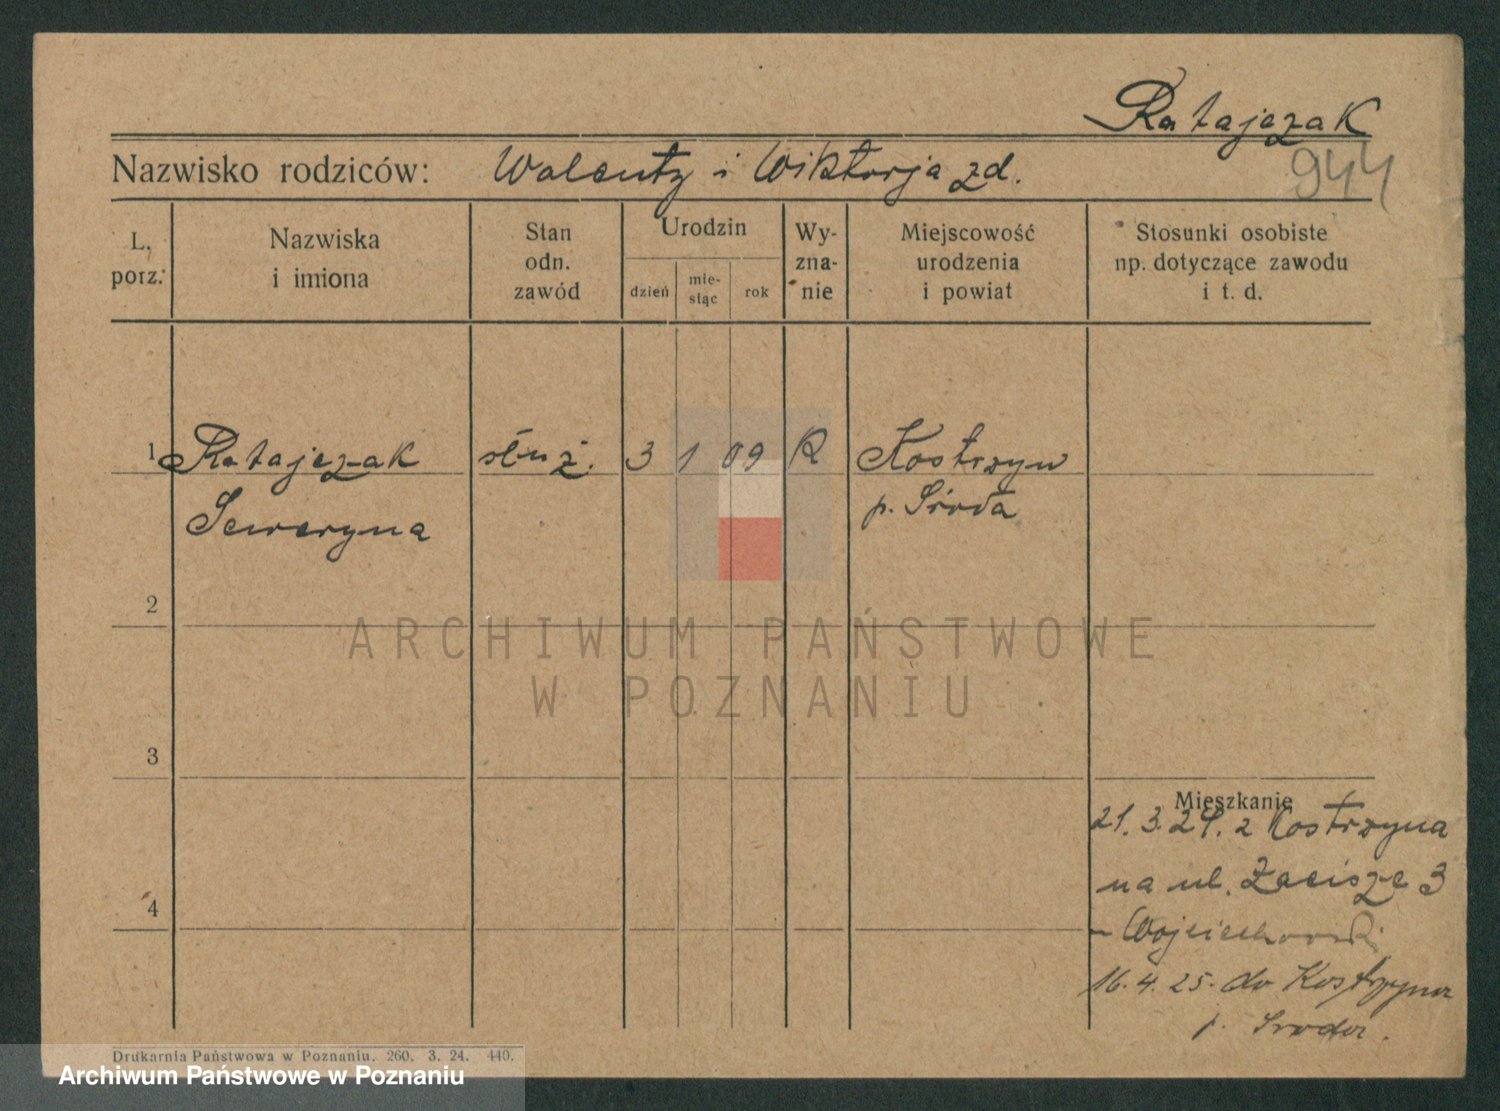 Ratajczak
944
Nazwisko rodziców: Walenty i Wiktorja zd.
L. porz.
Nazwiska i imiona
Stan odn. zawód
Urodzin
dzień
mie- siąc
rok
Wy- zna- nie
Miejscowość urodzenia i powiat
Stosunki osobiste np. dotyczące zawodu i t. d.
1 Ratajczak służ. 3 1 09 R Kostrzyn
Seweryna p. Środa
2
ARCHIWUM PAŃSTWOWE
W POZNANIU
3
Mieszkanie
21. 3. 24. z Kostrzyna
na ul. Zacisze 3
4
- Wojciechowski
16. 4. 25. do Kostrzyna
p. Środa.
Drukarnia Państwowa w Poznaniu. 260. 3. 24. 440.
Archiwum Państwowe w Poznaniu